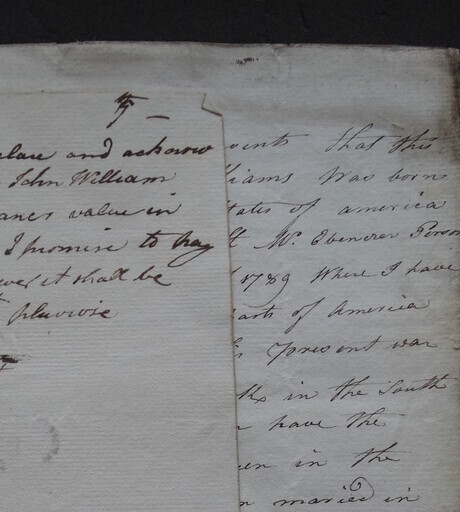 and acknow
John William
value in
I promise to pay
it shall be
pluviose
that this
liams Was born
tates of america
Mr. Ebenezer Person
1789 Where I have
arts of America
present war
in the South
have the
en in the
maried in